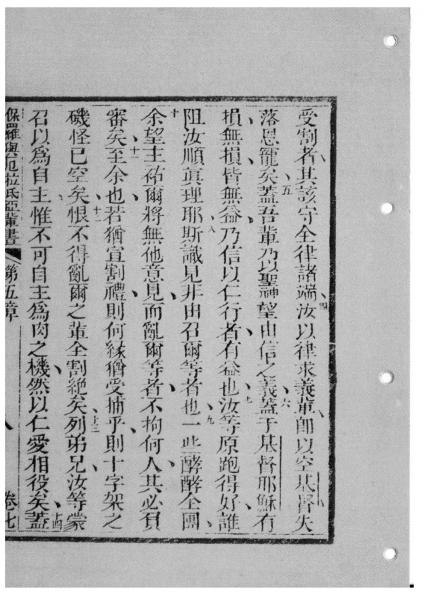 受割者其該守全律諸端汝以律求義輩即以空基督失
落恩寵矣蓋吾輩乃以聖神望由信之義蓋于基督耶穌有
損無損皆無益乃信以仁行者有益也汝等原跑得好誰
阻汝順真理耶斯識見非由召爾等者也一些酵酵全團
余望主祐爾將無他意見而亂爾等者不拘何人其必負
審矣至余也若猶宣割禮則何緣猶受捕乎則十字架之
磯怪已空矣恨不得亂爾之輩全割絕矣列弟兄汝等蒙
召以為自主惟不可自主為肉之機然以仁愛相役矣蓋
保羅與厄拉氏亞輩書 第五章 八 卷七